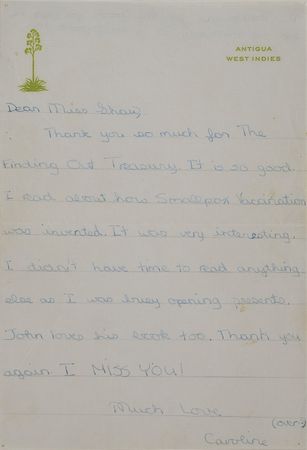 ANTIGUA
WEST INDIES
Dear Miss Shaw,
Thank you so much for The
Finding Out Treasury. It is so good.
I read about how Smallpox Vaccination
was invented. It was very interesting.
I didn't have time to read anything
else as I was busy opening presents.
John loves his book too. Thank you
again I MISS YOU!
Much Love
(over)
Caroline